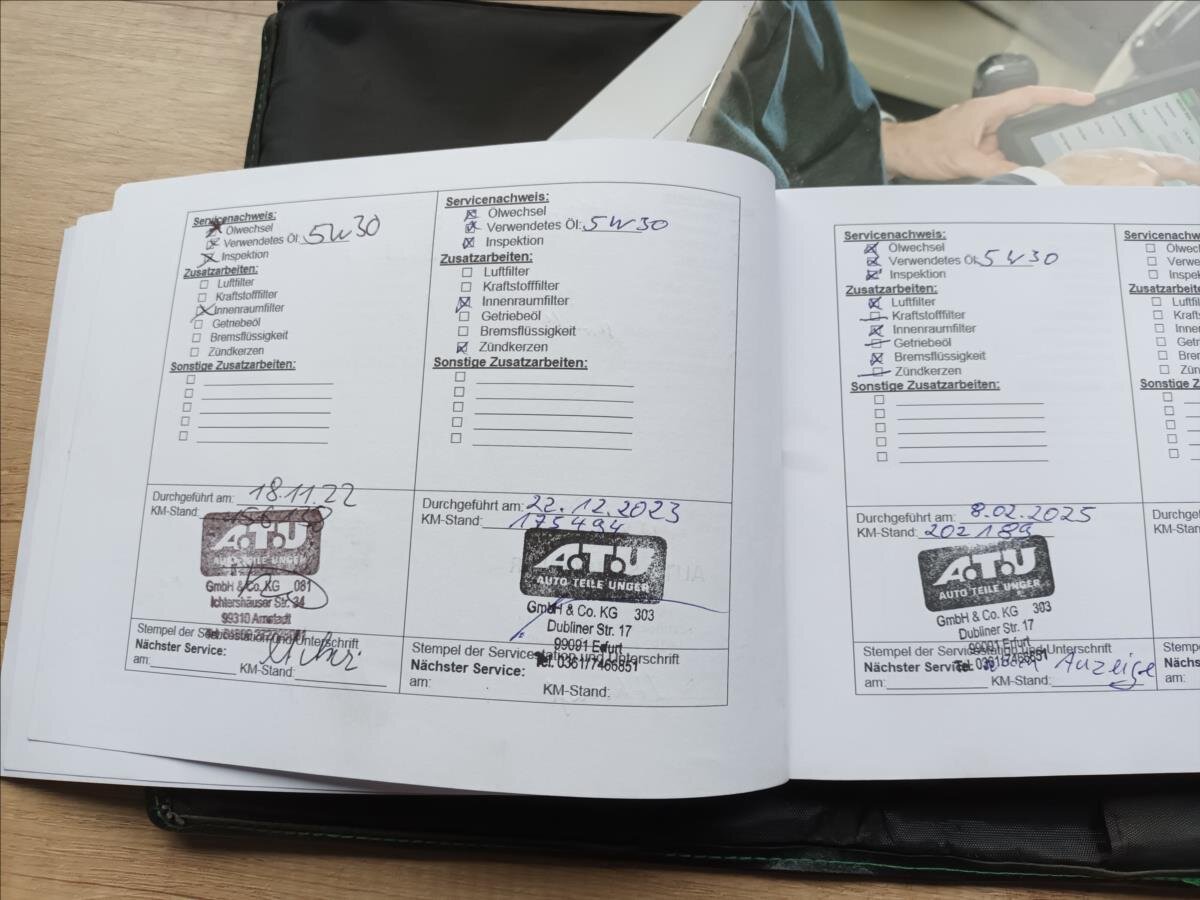 Servicenachweis:
Ölwechsel
Verwendetes Öl: 5W30
Inspektion
Zusatzarbeiten:
Luftfilter
Kraftstofffilter
Innenraumfilter
Getriebeöl
Bremsflüssigkeit
Zündkerzen
Sonstige Zusatzarbeiten:
Durchgeführt am: 18.11.22
KM-Stand:
A.T.U
AUTO TEILE UNGER
GmbH & Co. KG 081
Ichtershäuser Str. 34
99310 Arnstadt
Stempel der Servicestation und Unterschrift
Nächster Service:
am: KM-Stand:
Servicenachweis:
Ölwechsel
Verwendetes Öl: 5W30
Inspektion
Zusatzarbeiten:
Luftfilter
Kraftstofffilter
Innenraumfilter
Getriebeöl
Bremsflüssigkeit
Zündkerzen
Sonstige Zusatzarbeiten:
Durchgeführt am: 22.12.2023
KM-Stand: 175494
A.T.U
AUTO TEILE UNGER
GmbH & Co. KG 303
Dubliner Str. 17
99091 Erfurt
Stempel der Servicestation und Unterschrift
Tel. 0361/7466851
Nächster Service:
am:
KM-Stand:
Servicenachweis:
Ölwechsel
Verwendetes Öl: 5W30
Inspektion
Zusatzarbeiten:
Luftfilter
Kraftstofffilter
Innenraumfilter
Getriebeöl
Bremsflüssigkeit
Zündkerzen
Sonstige Zusatzarbeiten:
Durchgeführt am: 8.02.2025
KM-Stand: 202189
A.T.U
AUTO TEILE UNGER
GmbH & Co. KG 303
Dubliner Str. 17
99091 Erfurt
Stempel der Servicestation und Unterschrift
Tel. 0361/7466851
Nächster Service: Anzeige
am: KM-Stand:
Servicenachweis:
Ölwech
Verwe
Inspek
Zusatzarbeiten:
Luftfil
Krafts
Innen
Getri
Brem
Zünd
Sonstige Zus
Durchgefü
KM-Stand:
Stempel
Nächste
am: